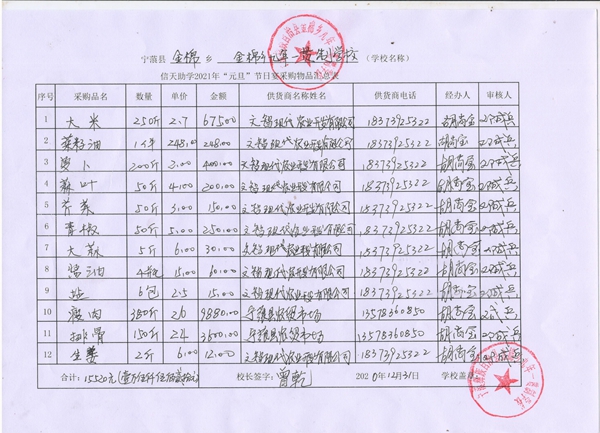 宁蒗县 金棉 乡 金棉乡九年一贯制学校 (学校名称)
信天助学2021年“元旦”节日宴采购物品汇总表
序号 采购品名 数量 单价 金额 供货商名称姓名 供货商电话 经办人 审核人
1 大米 250斤 2.7 675.00 文裕现代农业开发有限公司 18373925322 胡尚宝
2 菜籽油 1件 248.00 248.00 文裕现代农业开发有限公司 18373925322 胡尚宝
3 萝卜 200斤 2.00 400.00 文裕现代农业开发有限公司 18373925322 胡尚宝
4 50斤 4.00 200.00 文裕现代农业开发有限公司 18373925322 胡尚宝
5 芹菜 50斤 3.00 150.00 文裕现代农业开发有限公司 18373925322 胡尚宝
6 青椒 50斤 5.00 250.00 文裕现代农业开发有限公司 18373925322 胡尚宝
7 大蒜 5斤 6.00 30.00 文裕现代农业开发有限公司 18373925322 胡尚宝
8 酱油 4瓶 15.00 60.00 文裕现代农业开发有限公司 18373925322 胡尚宝
9 盐 6包 2.5 15.00 文裕现代农业开发有限公司 18373925322 胡尚宝
10 瘦肉 380斤 26 9880.00 宁蒗县农贸市场 13578360850 胡尚宝
11 排骨 150斤 24 3600.00 宁蒗县农贸市场 13578360850 胡尚宝
12 生姜 2斤 6.00 12.00 文裕现代农业开发有限公司 18373925322 胡尚宝
合计:15520元(壹万伍仟伍佰贰拾元) 校长签字: 曾乾 2020年12月31日 学校盖章